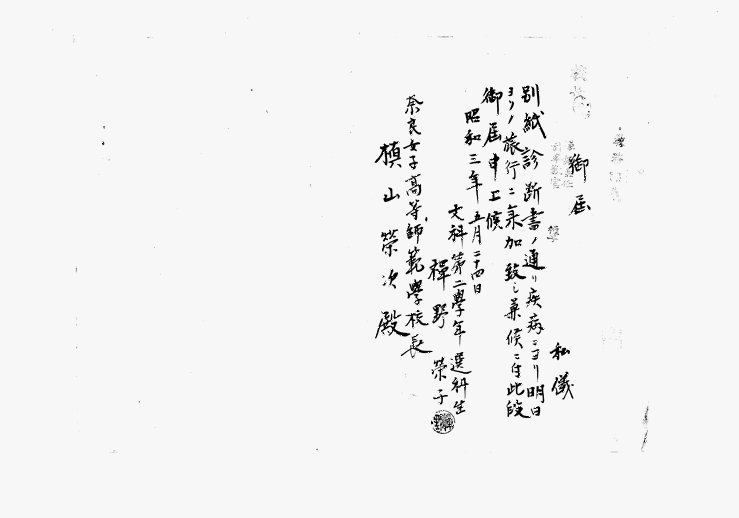 御届
私儀
別紙診断書ノ通リ疾病ニヨリ明日
ヨリノ旅行ニ参加致シ兼候ニ付此段
御届申上候
昭和三年五月二十四日
文科第二學年選科生
野榮子
奈良女子高等師範學校長
槙山榮次殿